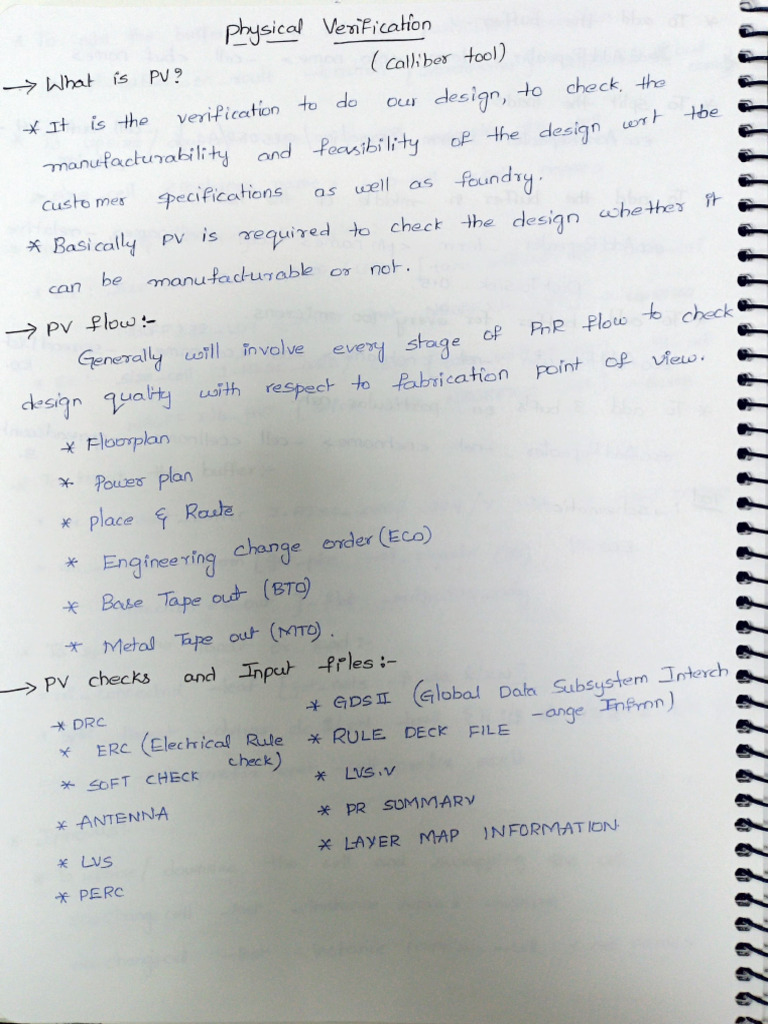 Physical Verification
(Caliber tool)
→ What is PV?
* It is the verification to do our design, to check, the
manufacturability and feasibility of the design wrt the
customer specifications as well as foundry.
* Basically PV is required to check the design whether it
can be manufacturable or not.
→ PV flow:-
Generally will involve every stage of PnR flow to check
design quality with respect to fabrication point of view.
* Floorplan
* Power plan
* place & Route
* Engineering change order (ECO)
* Base Tape out (BTO)
* Metal Tape out (MTO).
→ PV checks and Input files:-
* DRC
* ERC (Electrical Rule
check)
* SOFT CHECK
* ANTENNA
* LVS
* PERC
* GDS II (Global Data Subsystem Interch
-ange Infmn)
* RULE DECK FILE
* LVS.V
* PR SUMMARY
* LAYER MAP INFORMATION